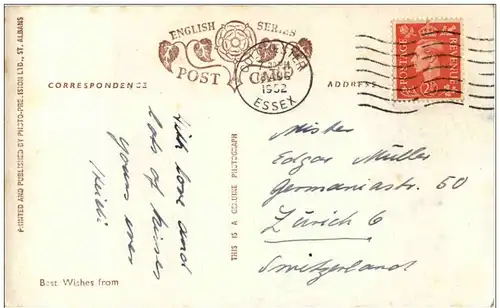 ENGLISH SERIES
POST CARD
COLCHESTER
ESSEX
1952
POSTAGE
REVENUE
CORRESPONDENCE
ADDRESS
With love and
lots of kisses
yours ever
Heidi
Best Wishes from
PRINTED AND PUBLISHED BY PHOTO-PRECISION LTD., ST. ALBANS
THIS IS A GENUINE PHOTOGRAPH
Mister
Edgar Müller
Germaniastr. 50
Zürich 6
Switzerland